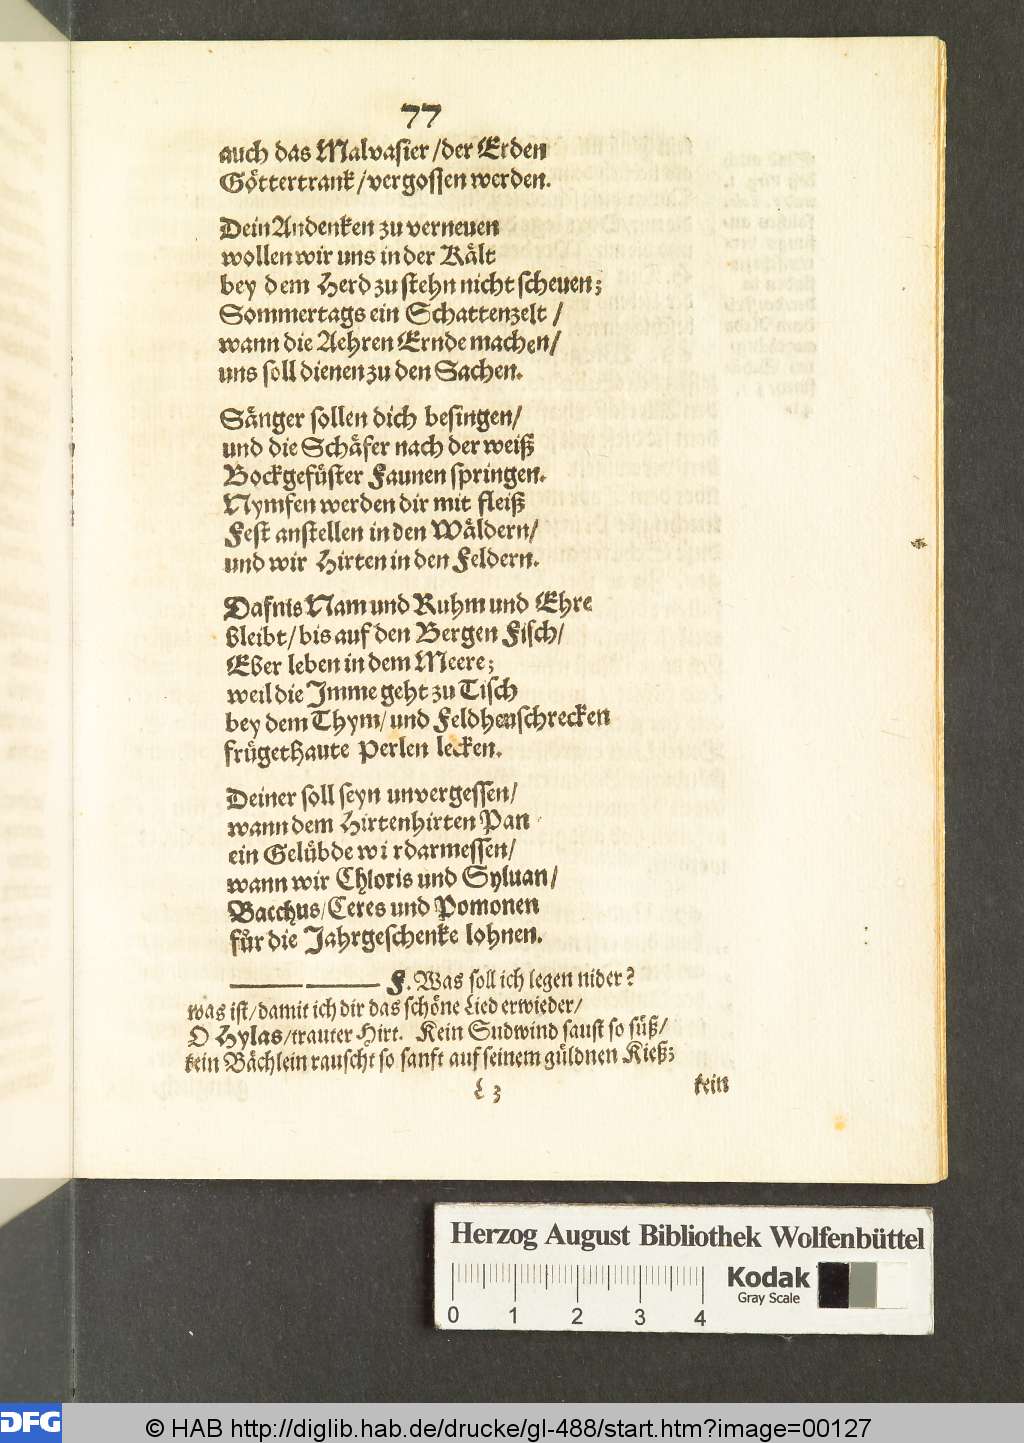 77
auch das Malvasier / der Erden
Göttertrank / vergossen werden.
Dein Andenken zu verneuen
wollen wir uns in der Kält
bey dem Herd zu stehn nicht scheuen;
Sommertags ein Schattenzelt /
wann die Aehren Ernde machen /
uns soll dienen zu den Sachen.
Sänger sollen dich besingen /
und die Schäfer nach der weiß
Bockgefüster Faunen springen.
Nymfen werden dir mit fleiß
Fest anstellen in den Wäldern /
und wir Hirten in den Feldern.
Dafnis Nam und Ruhm und Ehre
bleibt / bis auf den Bergen Fisch /
Eber leben in dem Meere;
weil die Imme geht zu Tisch
bey dem Thym / und Feldhenschrecken
frügethaute Perlen lecken.
Deiner soll seyn unvergessen /
wann dem Hirtenhirten Pan
ein Gelübde wir darmessen /
wann wir Chloris und Syluan /
Bacchus / Ceres und Pomonen
für die Jahrgeschenke lohnen.
F. Was soll ich legen nider?
was ist / damit ich dir das schöne Lied erwieder /
O Hylas / trauter Hirt. Kein Sudwind saust so süß /
kein Bächlein rauscht so sanft auf seinem güldnen Kieß;
L 3 kein
Herzog August Bibliothek Wolfenbüttel
Kodak
Gray Scale
0 1 2 3 4
DFG © HAB http://diglib.hab.de/drucke/gl-488/start.htm?image=00127